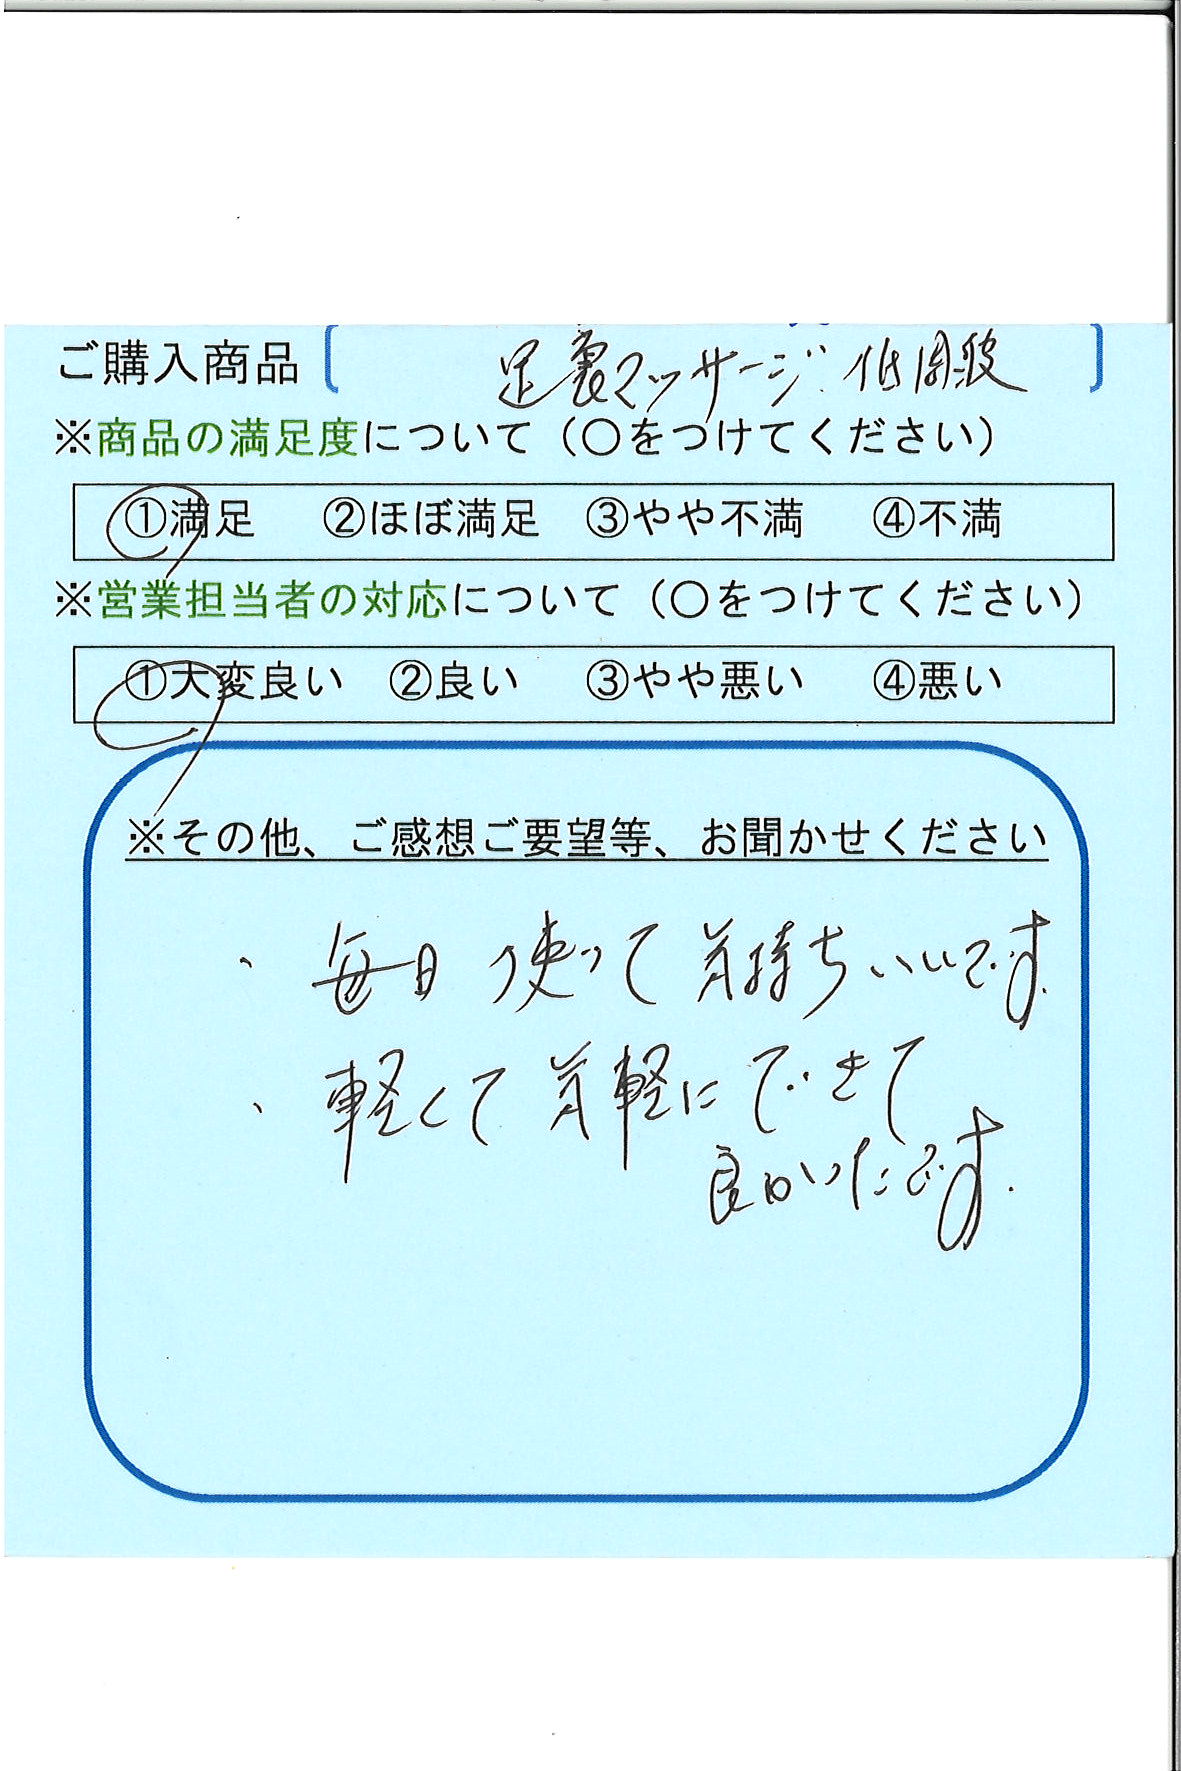 ご購入商品 [ 足裏マッサージ 低周波 ]
※商品の満足度について（○をつけてください）
①満足 ②ほぼ満足 ③やや不満 ④不満
※営業担当者の対応について（○をつけてください）
①大変良い ②良い ③やや悪い ④悪い
※その他、ご感想ご要望等、お聞かせください
、毎日使って気持ちいいです.
、軽くて気軽にできて
良かったです.